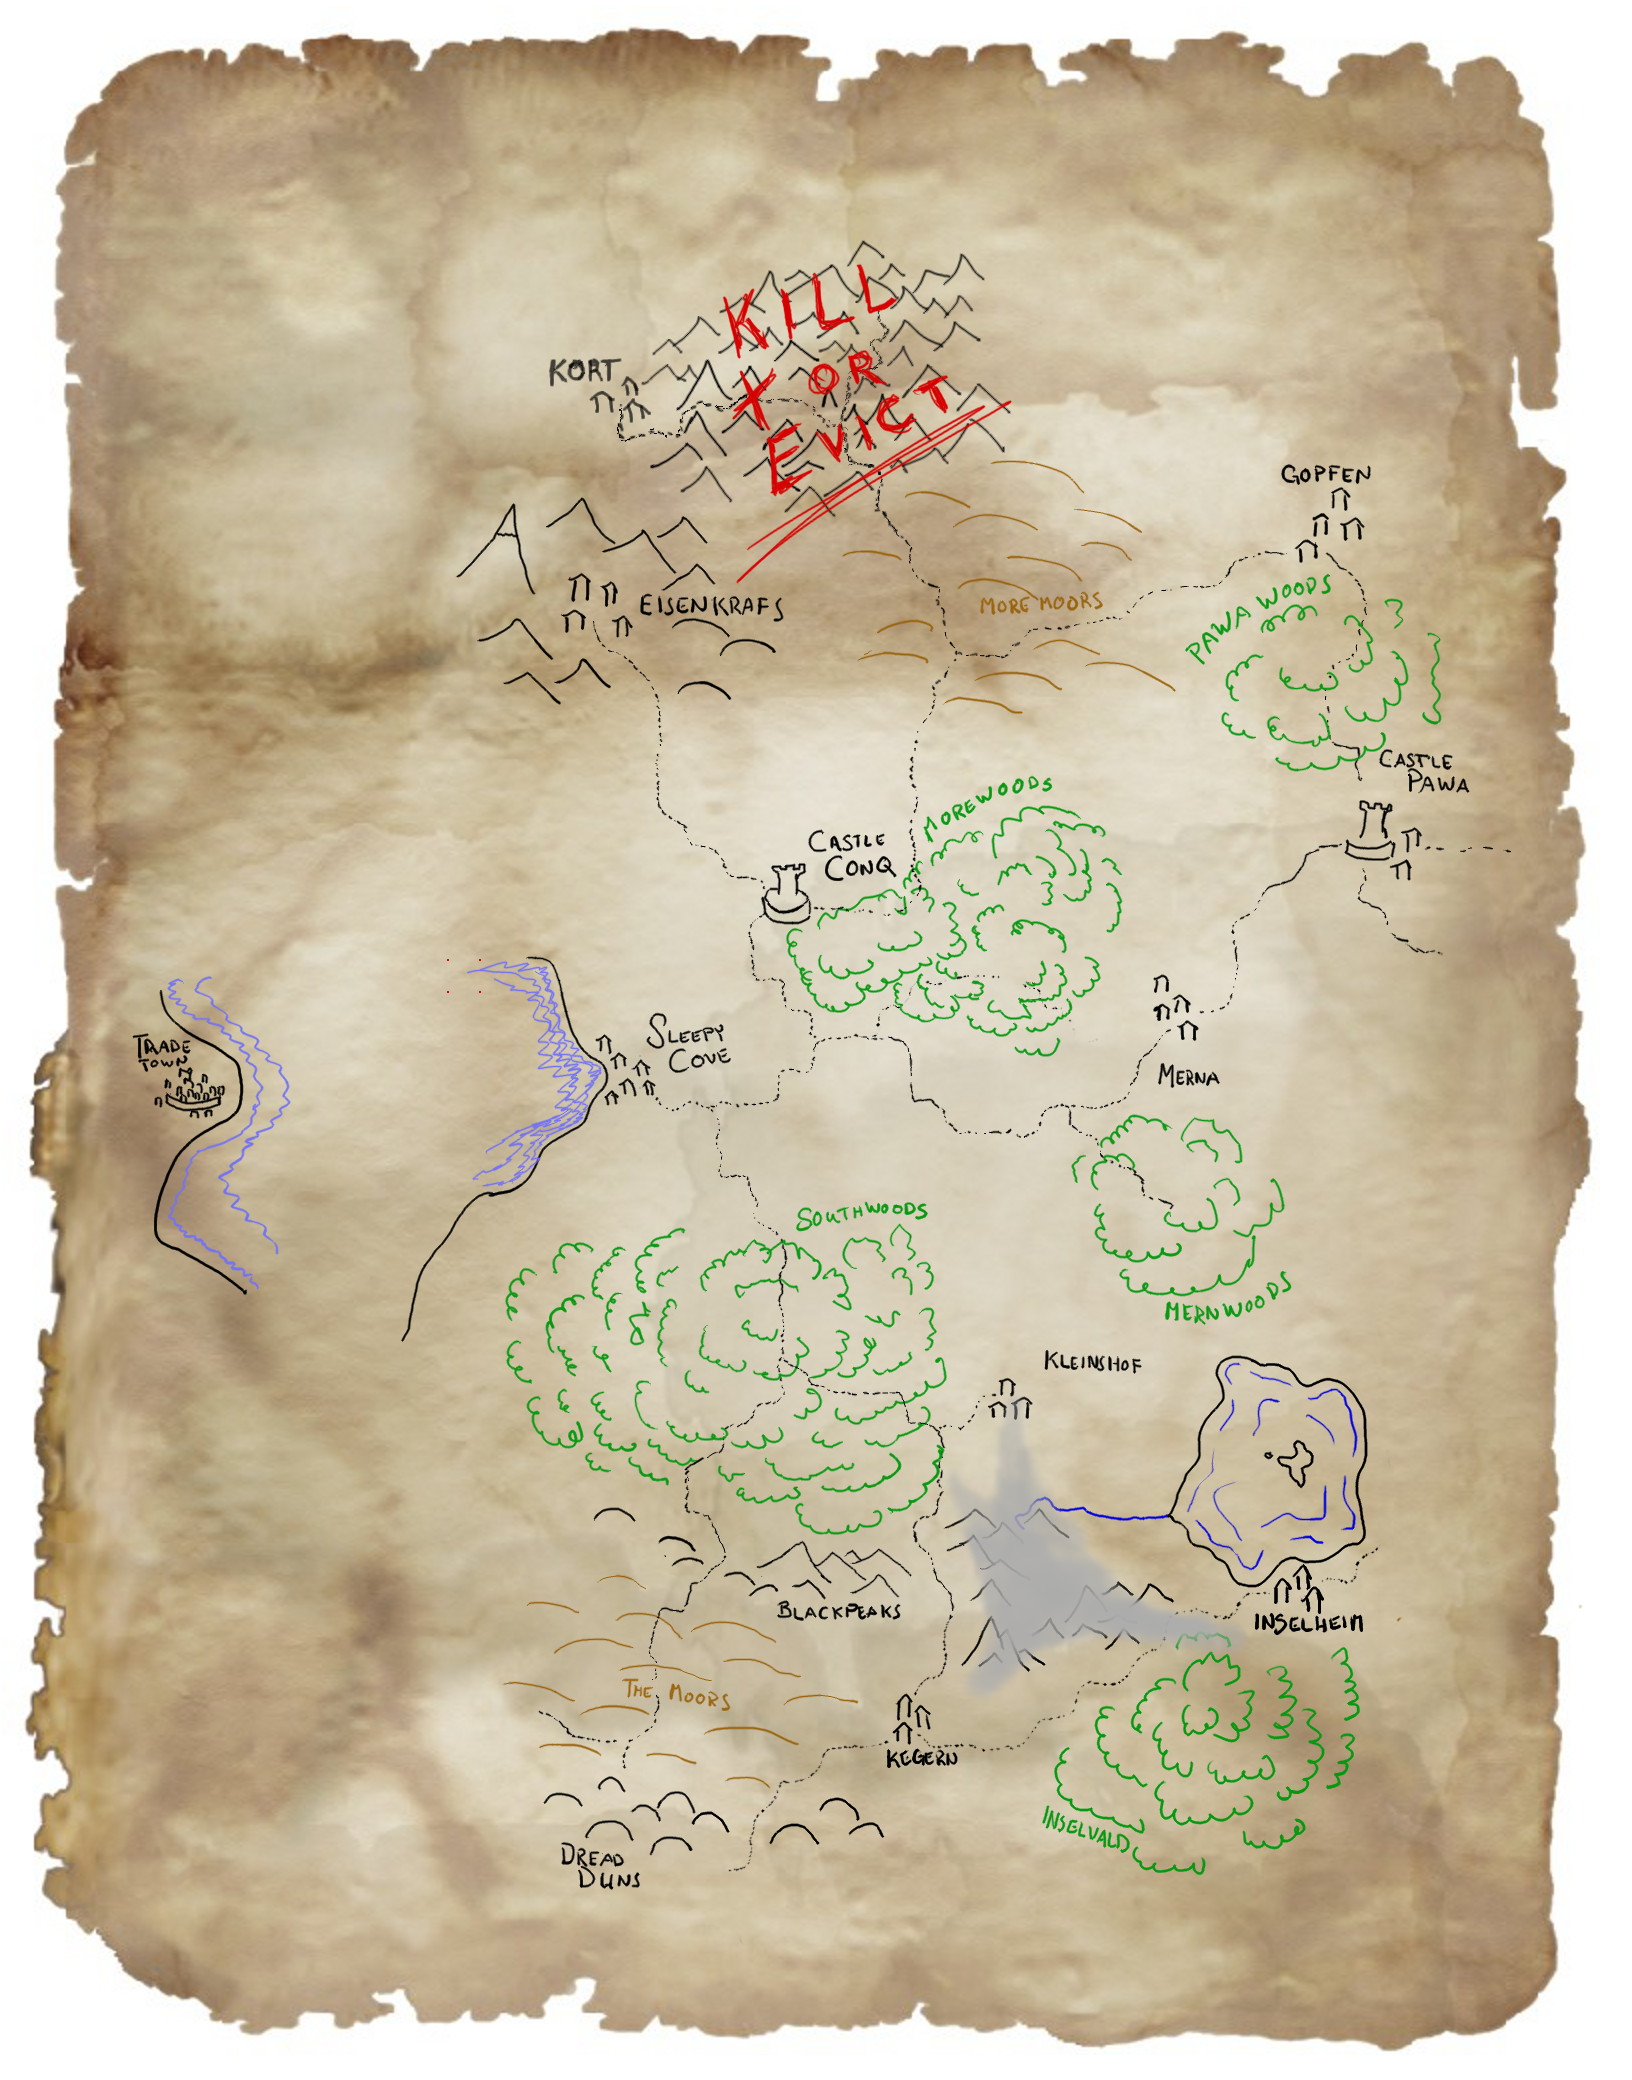 KILL
OR
EVICT
KORT
GOPFEN
EISENKRAFS
MORE MOORS
PAWA WOODS
CASTLE
PAWA
MOREWOODS
CASTLE
CONQ
SLEEPY
COVE
TRADE
TOWN
MERNA
SOUTHWOODS
MERNWOODS
KLEINSHOF
BLACKPEAKS
INSELHEIM
THE MOORS
KEGERN
INSELVALD
DREAD
DUNS